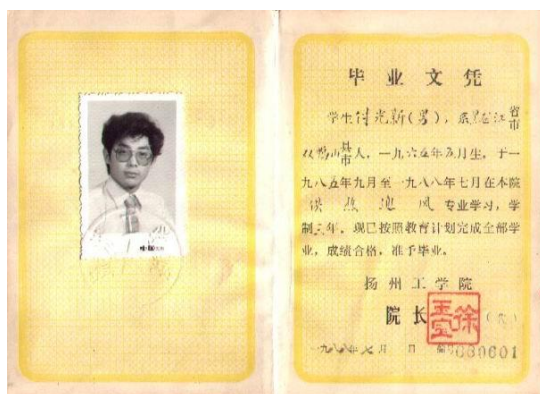 毕业文凭
学生付光新(男),系黑龙江省市
双鸭山县市人,一九六五年五月生,于一
九八五年九月至一九八八年七月在本院
供热通风专业学习,学
制三年,现已按照教育计划完成全部学
业,成绩合格,准予毕业。
扬州工学院
院长
一九八八年七月 日 编号 880601